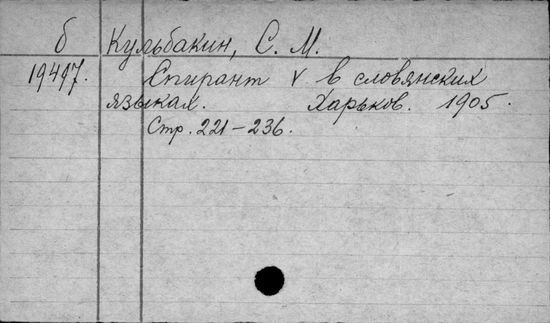 б Кульбакин, С. М.
19497. Спирант v в словянских
языках. Харьков. 1905.
Стр. 221-236.